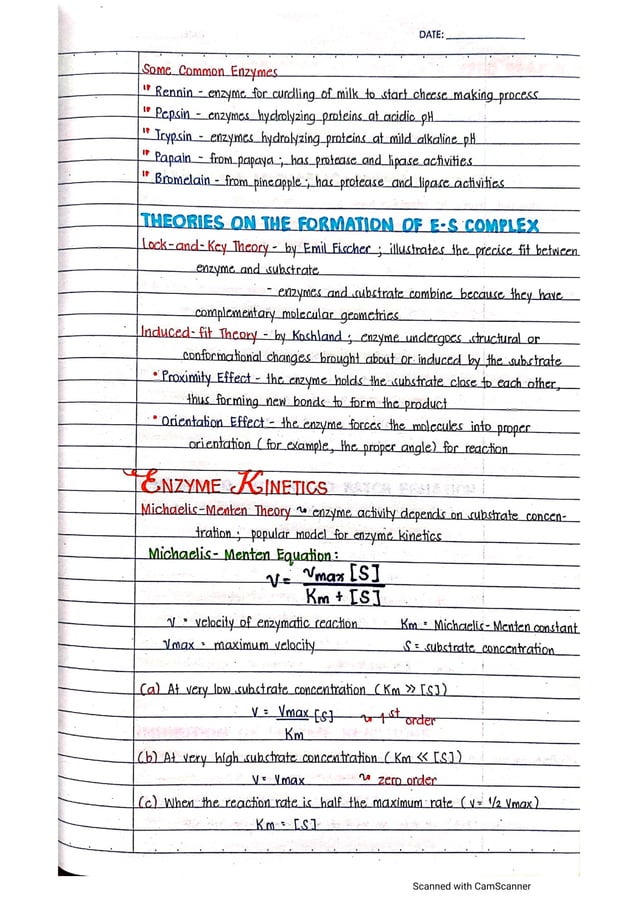 DATE:
Some Common Enzymes
" Rennin - enzyme for curdling of milk to start cheese making process
" Pepsin - enzymes hydrolyzing proteins at acidic pH
" Trypsin - enzymes hydrolyzing proteins at mild alkaline pH
" Papain - from papaya ; has protease and lipase activities
" Bromelain - from pineapple ; has protease and lipase activities
THEORIES ON THE FORMATION OF E-S COMPLEX
Lock-and-Key Theory - by Emil Fischer ; illustrates the precise fit between
enzyme and substrate
- enzymes and substrate combine because they have
complementary molecular geometries
Induced-fit Theory - by Koshland ; enzyme undergoes structural or
conformational changes brought about or induced by the substrate
• Proximity Effect - the enzyme holds the substrate close to each other,
thus forming new bonds to form the product
• Orientation Effect - the enzyme forces the molecules into proper
orientation ( for example, the proper angle) for reaction
ENZYME KINETICS
Michaelis-Menten Theory ~ enzyme activity depends on substrate concen-
tration ; popular model for enzyme kinetics
Michaelis-Menten Equation :
V = Vmax [S]
Km + [S]
V = velocity of enzymatic reaction Km = Michaelis-Menten constant
Vmax = maximum velocity S = substrate concentration
(a) At very low substrate concentration ( Km >> [S])
V = Vmax [S] ~ 1st order
Km
(b) At very high substrate concentration ( Km << [S])
V = Vmax ~ zero order
(c) When the reaction rate is half the maximum rate ( V = 1/2 Vmax)
Km = [S]
Scanned with CamScanner